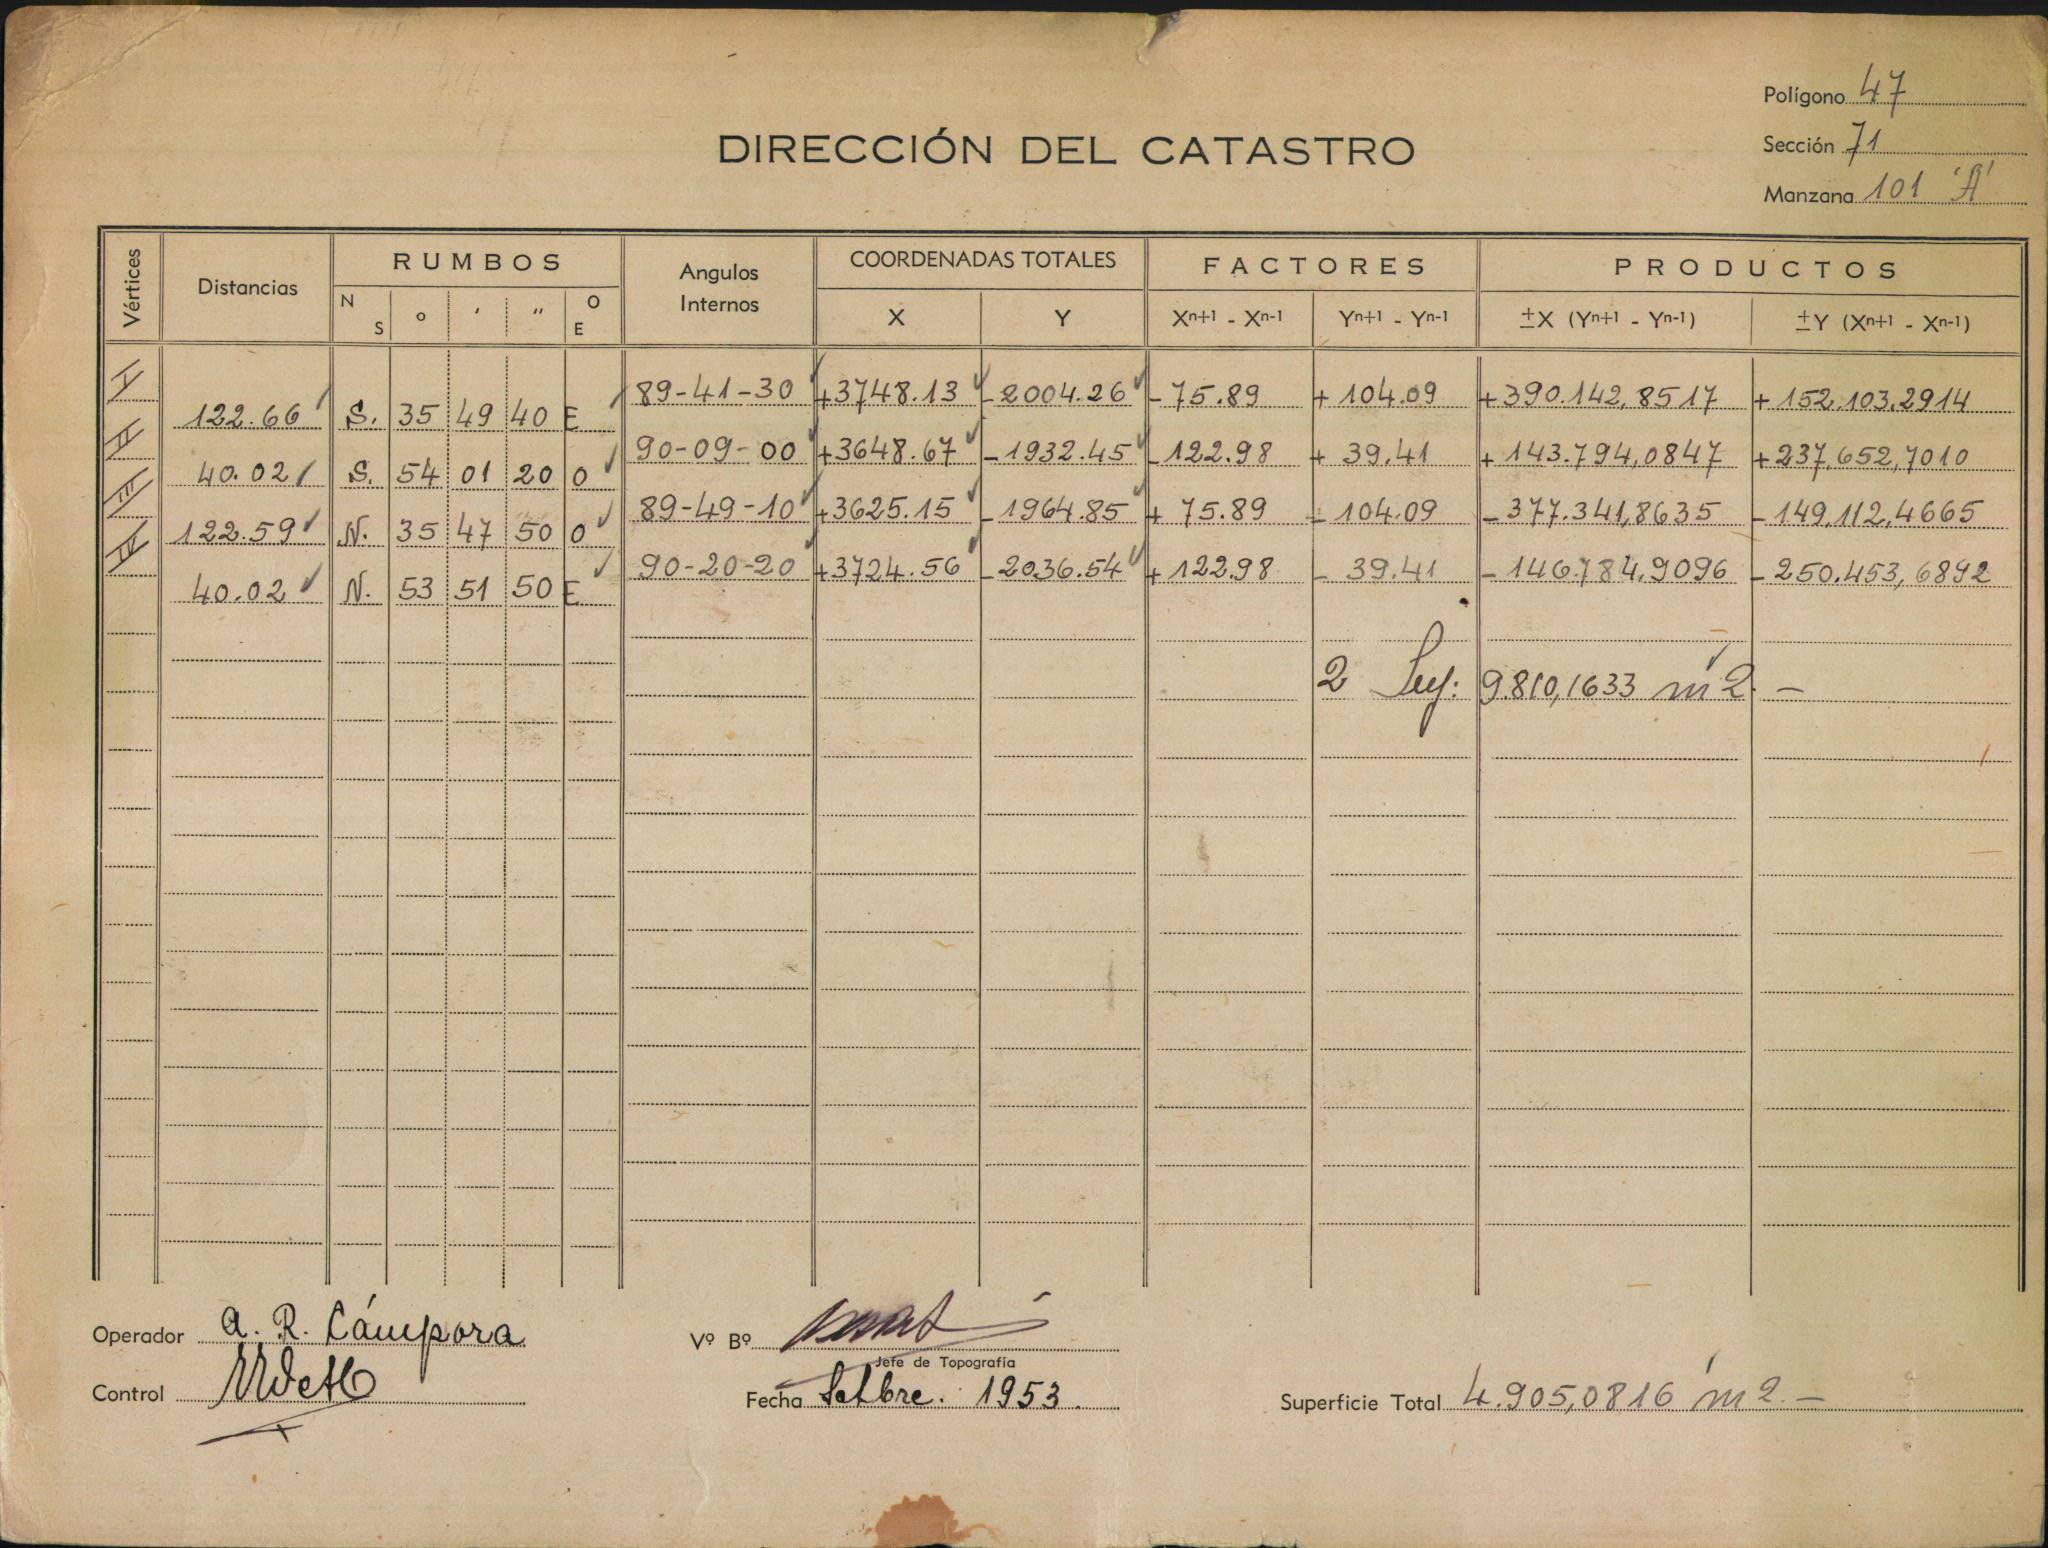 Polígono 47
DIRECCIÓN DEL CATASTRO
Sección 71
Manzana 101 'A'
Vértices Distancias RUMBOS Angulos Internos COORDENADAS TOTALES FACTORES PRODUCTOS
N S o ' " O E X Y Xn+1 - Xn-1 Yn+1 - Yn-1 ±X (Yn+1 - Yn-1) ±Y (Xn+1 - Xn-1)
I 89-41-30 +3748.13 -2004.26 -75.89 +104.09 +390.142,8517 +152.103.2914
122.66 S. 35 49 40 E
II 90-09-00 +3648.67 -1932.45 -122.98 +39.41 +143.794,0847 +237.652,7010
40.02 S. 54 01 20 O
III 89-49-10 +3625.15 -1964.85 +75.89 -104.09 -377.341,8635 -149.112,4665
122.59 N. 35 47 50 O
IV 90-20-20 +3724.56 -2036.54 +122.98 -39.41 -146.784,9096 -250.453,6892
40.02 N. 53 51 50 E
2 Sup: 9.810,1633 m2. —
Operador A. R. Cámpora
Vº Bº
Jefe de Topografía
Control
Fecha Setbre. 1953.
Superficie Total 4.905,0816 m2. —